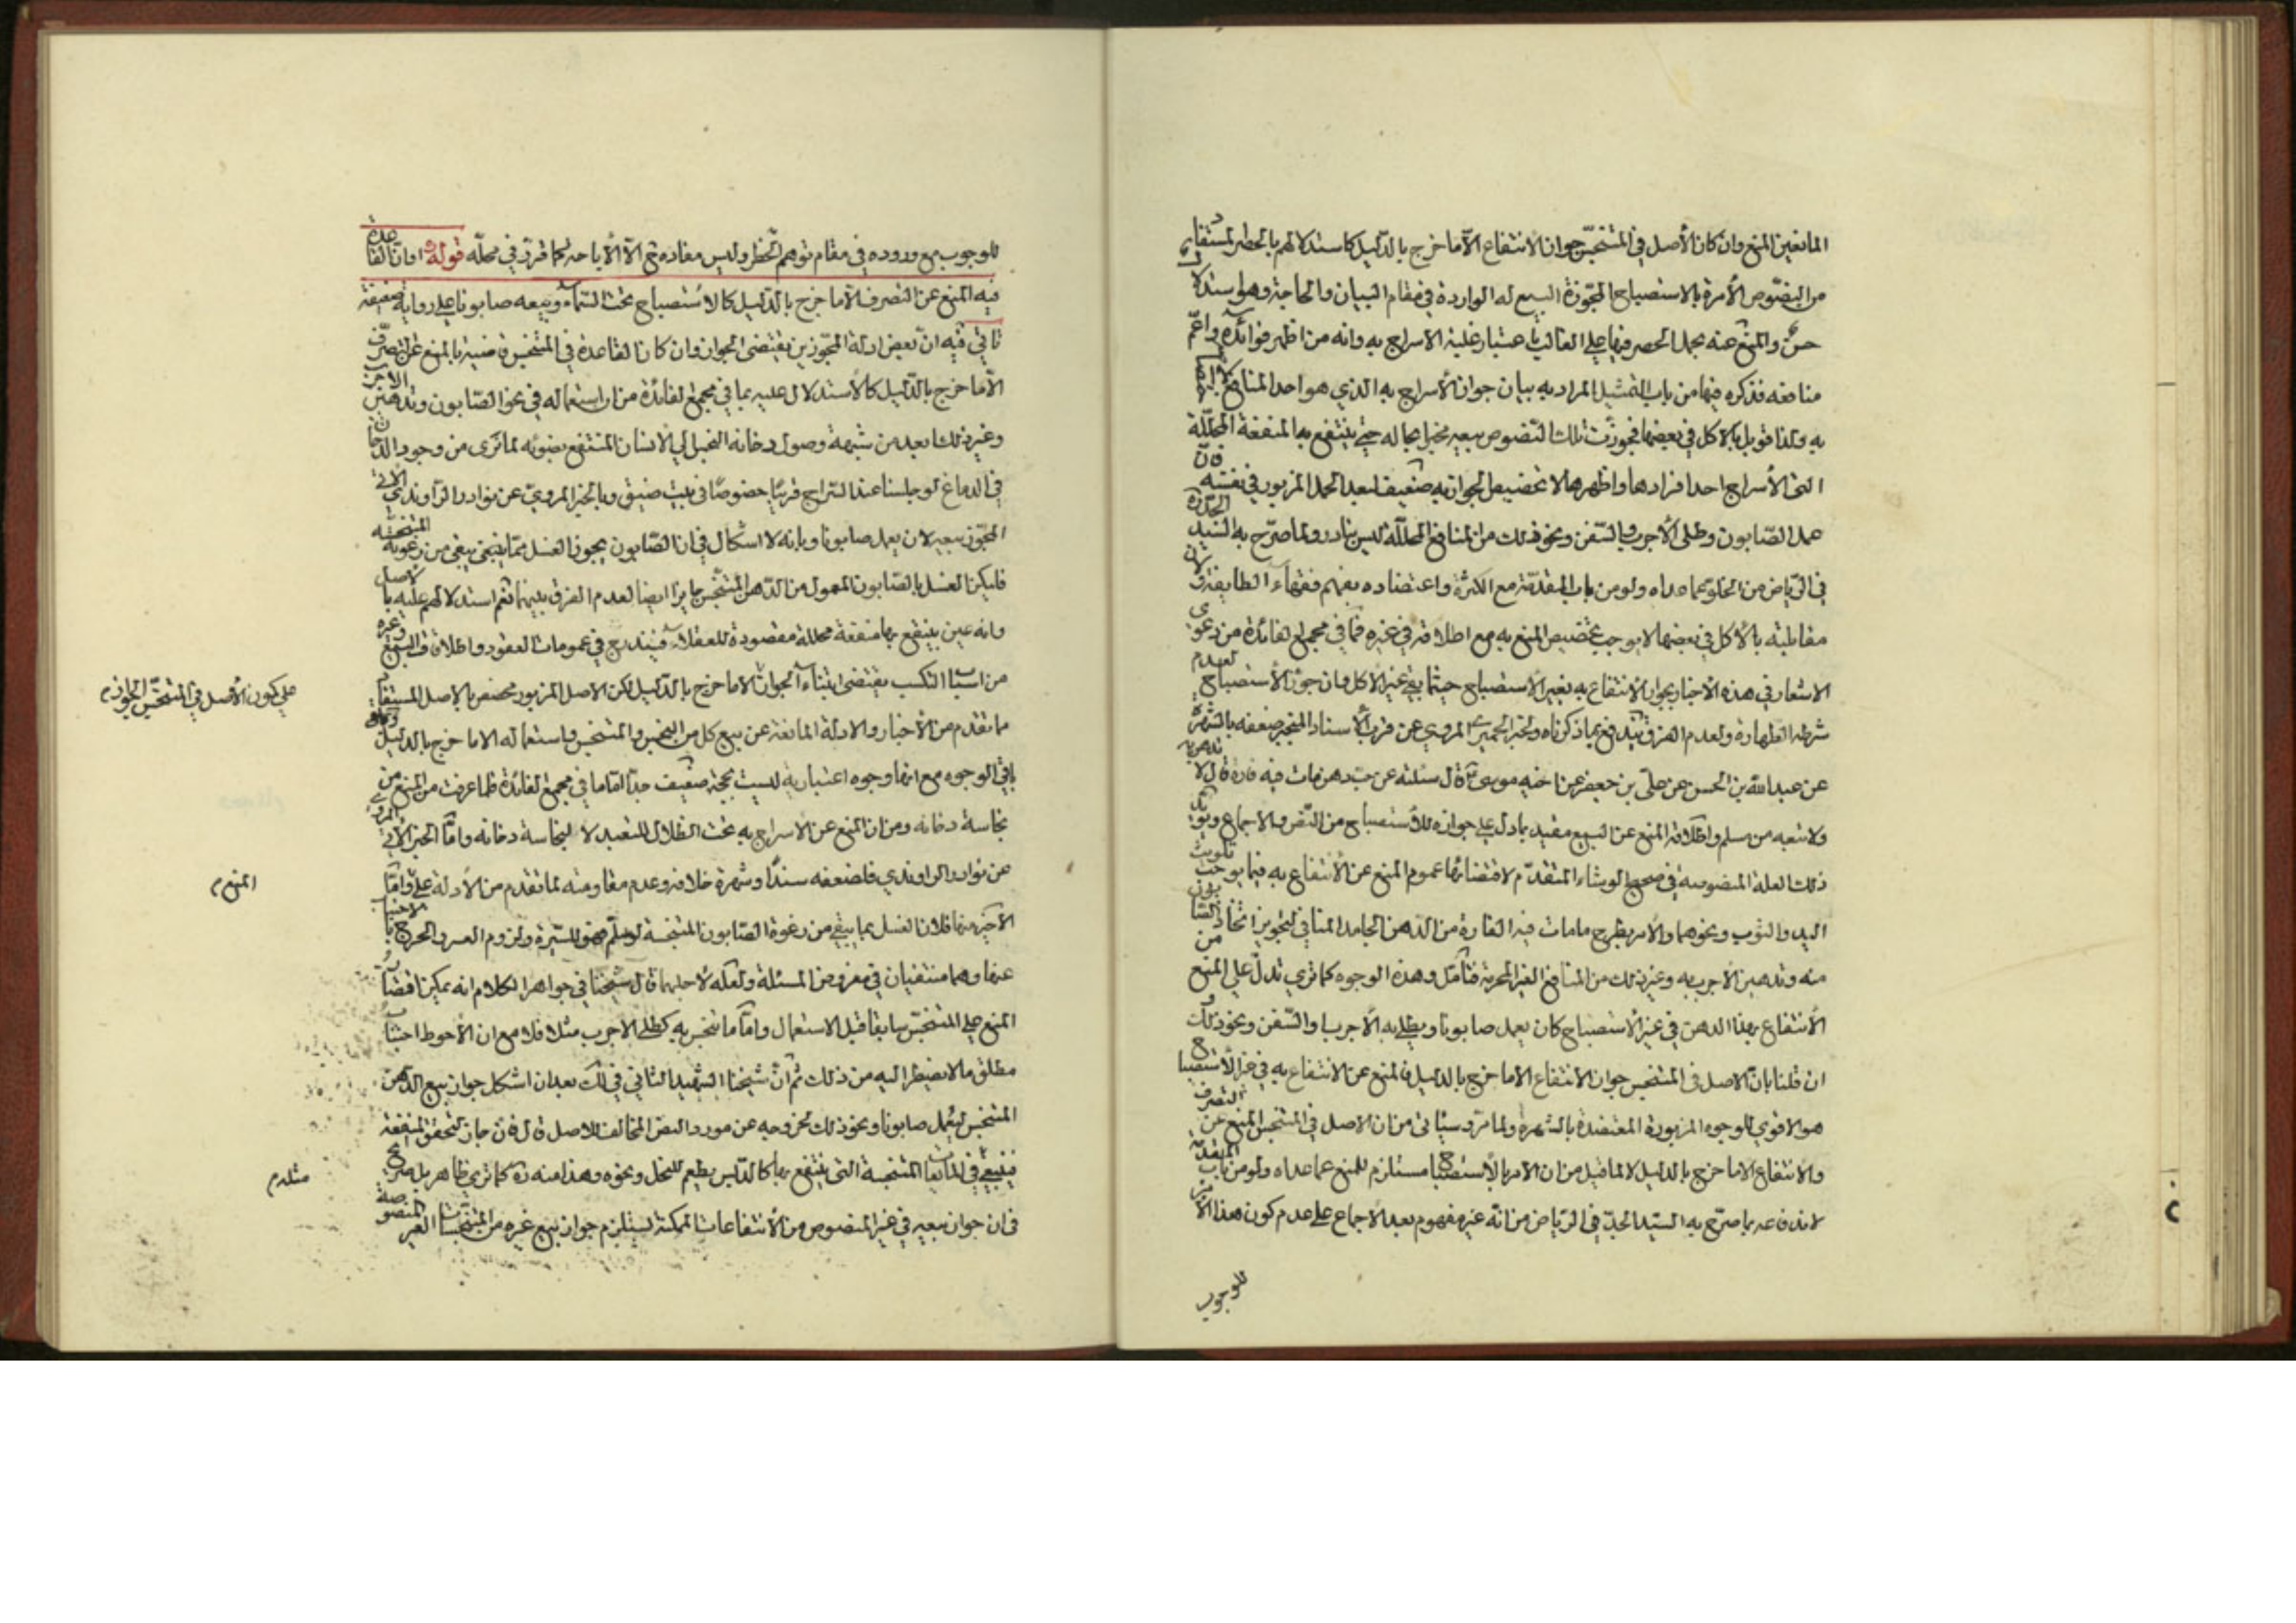 المانعين المنع وان كان الأصل في المتنجس جواز الانتفاع الا ما خرج بالدليل كاستدلالهم بالحصر المستفاد
من النصوص الآمرة بالاستصباح المجوزة للبيع له الواردة في مقام البيان والحاجة وهو استدلال
حسن والمنع عنه بحمل الحصر فيها على الغالب باعتبار غلبة الاسراج به وانه من اظهر فوائده واعم
منافعه فذكره فيها من باب التمثيل المراد به بيان جواز الأسراج به الذي هو احد المنافع
به ولذا قوبل بالاكل في بعضها فجوزت تلك النصوص بيعه مخبرا بحاله حتى ينتفع به المنفعة المحللة
التي الأسراج احد افرادها واظهرها لا تخصيص الجواز به ضعيف لبعد الحمل المزبور في نفسه فان
عمل الصابون وطلى الأجرب والسفن ونحو ذلك من المنافع المحللة ليس بنادر ولما صرح به السيد الجد ره
في الرياض من الخلو عما عداه ولو من باب المقدمة مع الكثرة واعتضاده بفهم فقهاء الطايفة ولان
مقابلته بالأكل في بعضها لا يوجب تخصيص المنع به مع اطلاقه في غيره فما في مجمع الفائدة من دعوى
الاشعار في هذه الأخبار بجواز الانتفاع به بغير الاستصباح حيثما يبقى غير الأكل فان جواز الاستصباح لعدم
شرطه الطهارة ولعدم الفرق يندفع بما ذكرناه ولخبر الحميري المروي عن قرب الأسناد المنجبر ضعفه بالشهرة
عن عبد الله بن الحسن عن علي بن جعفر عن اخيه موسى ع قال سئلته عن حب دهن مات فيه فارة قال لا تدهن به
ولا تبعه من مسلم واطلاقه المنع عن البيع مقيد بما دل على جوازه للأستصباح من النص والاجماع ويؤيد
ذلك العلة المنصوصة في صحيح الوشاء المتقدم لاقتضائها عموم المنع عن الأنتفاع به فيما يوجب تلويث
اليد والثوب ونحوهما والأمر بطرح ما مات فيه الفارة من الدهن الجامد المنافي لتجويز اتخاذ الصابون
منه وتدهين الأجرب به وغير ذلك من المنافع الغير المحرمة فتأمل وهذه الوجوه كما ترى تدل على المنع من
الأنتفاع بهذا الدهن في غير الأستصباح كان يعمل صابونا ويطلى به الأجرب والسفن ونحو ذلك و
ان قلنا بان الاصل في المتنجس جواز الانتفاع الا ما خرج بالدليل فالمنع عن الانتفاع به في غير الأستصباح
هو الاقوى للوجوه المزبورة المعتضدة بالشهرة ولما مر وسيأتي من ان الاصل في المتنجس المنع عن التصرف
والانتفاع الا ما خرج بالدليل لا لما قيل من ان الامر بالأستصباح مستلزم للمنع عما عداه ولو من باب المقدمة
لاندفاعه بما صرح به السيد الجد في الرياض من انه غير مفهوم بعد الاجماع على عدم كون هذا الأمر
للوجوب
للوجوب مع وروده في مقام توهم الحظر وليس مفاده ح الا الأباحة كما قرر في محله قوله اما ان القاعدة
فيه المنع عن التصرف الا ما خرج بالدليل كالاستصباح تحت السماء وبيعه صابونا على رواية ضعيفة
تاتي فيه ان بعض ادلة المجوزين يقتضى الجواز وان كان القاعدة في المتنجس قاضية بالمنع عن التصرف
الا ما خرج بالدليل كالأستدلال عليه بما في مجمع الفائدة من ان استعماله في نحو الصابون وتدهين الاجرب
وغير ذلك ابعد من شبهة وصول دخانه النجس الى الانسان المنتفع بضوئه لما ترى من وجود الدخان
في الدماغ لو جلسنا عند السراج قريبا خصوصا في بيت ضيق وبالخبر المروي عن نوادر الراوندي الآتي
المجوز بيعه لان يعمل صابونا وبانه لا اشكال في ان الصابون يجوز الغسل مما يبقى من رغوته المتنجسة
فليكن الغسل بالصابون المعمول من الدهن المتنجس جايزا ايضا لعدم الفرق بينهما نعم استدلالهم عليه بالاصل
وانه عين ينتفع بها منفعة محللة مقصودة للعقلاء فيندرج في عمومات العقود واطلاقات البيع وغيره
من اسباب التكسب يقتضى ابتناء الجواز الا ما خرج بالدليل لكن الاصل المزبور مخصص بالاصل المستفاد
على كون الأصل في المتنجس الجواز م
ما تقدم من الأخبار والادلة المانعة عن بيع كل من النجس والمتنجس واستعماله الا ما خرج بالدليل واما
باقي الوجوه مع انها وجوه اعتبارية ليست بحجة ضعيف جدا اما ما في مجمع الفائدة فلما عرفت من المنع من
نجاسة دخانه ومن ان المنع عن الاسراج به تحت الظلال للتعبد لا لنجاسة دخانه واما الخبر الآتي المروي
عن نوادر الراوندي فلضعفه سندا وشهرة خلافه وعدم مقاومته لما تقدم من الأدلة على واما
المنع م
الأخير منها فلان الغسل بما يبقى من رغوة الصابون المتنجسة لو سلم فهو للسيرة ولزوم العسر والحرج بالاجتناب
عنها وهما منتفيان في مفروض المسئلة ولعله لأجلها قال شيخنا في جواهر الكلام انه يمكن اقتضاء
المنع على المتنجس سابقا قبل الاستعمال واما ما تنجس به كطلى الاجرب مثلا فلا مع ان الأحوط اجتناب
مطلق ما لا يضطر اليه من ذلك ثم ان شيخنا الشهيد الثاني في لك بعد ان اشكل جواز بيع الدهن
المتنجس ليعمل صابونا ونحو ذلك لخروجه عن مورد النص المخالف للاصل قال فان جاز لتحقق المنفعة
فينبغي في المايعات المتنجسة التي ينتفع بها كالدبس يطعم للنحل ونحوه وهذا منه ره كما ترى ظاهر بل صريح
مثله م
في ان جواز بيعه في غير المنصوص من الأنتفاعات الممكنة يستلزم جواز بيع غيره من المتنجسات الغير المنصوصة